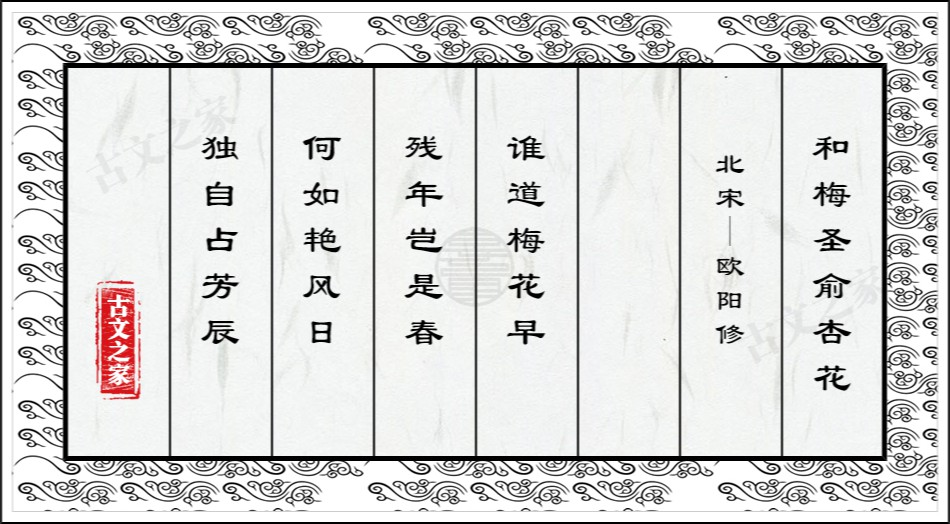 和梅圣俞杏花
北宋—欧阳修
谁道梅花早
残年岂是春
何如艳风日
独自占芳辰
古文之家
古文之家
古文之家